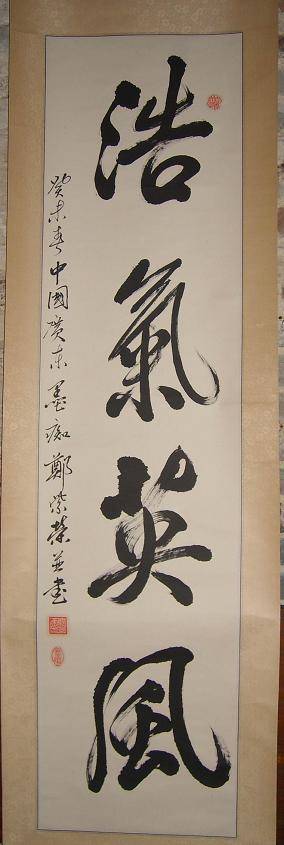 浩氣英風
癸未春中國廣東墨痴鄭紫榮並書